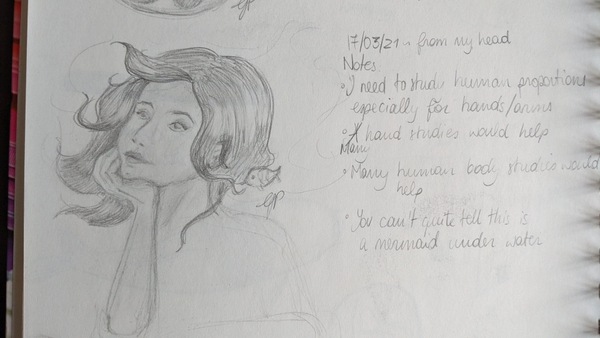 17/03/21 ~ from my head
Notes:
• I need to study human proportions
especially for hands/arms
• A hand studies would help
Many
• Many human body studies would
help
• You can't quite tell this is
a mermaid under water